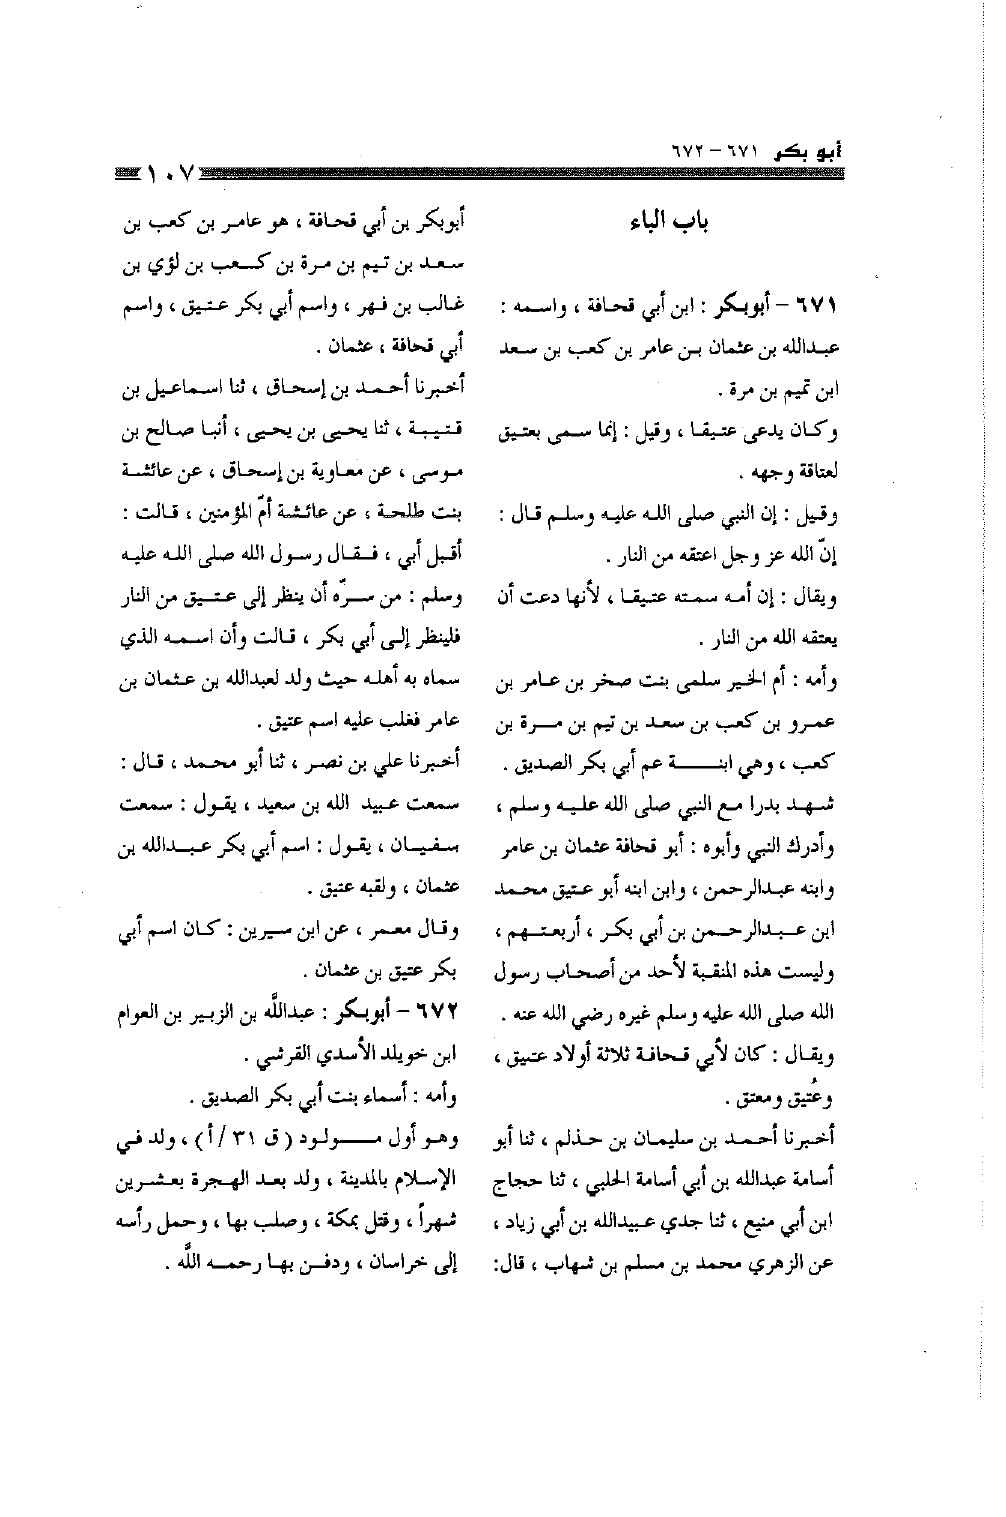 أبو بكر ٦٧١ - ٦٧٢
١٠٧
باب الباء
٦٧١ - أبوبكر : ابن أبي قحافة ، واسمه :
عبدالله بن عثمان بن عامر بن كعب بن سعد
ابن تميم بن مرة .
وكان يدعى عتيقا ، وقيل : إنما سمى بعتيق
لعتاقة وجهه .
وقيل : إن النبي صلى الله عليه وسلم قال :
إنّ الله عز وجل اعتقه من النار .
ويقال : إن أمه سمته عتيقا ، لأنها دعت أن
يعتقه الله من النار .
وأمه : أم الخير سلمى بنت صخر بن عامر بن
عمرو بن كعب بن سعد بن تيم بن مرة بن
كعب ، وهي ابنة عم أبي بكر الصديق .
شهد بدرا مع النبي صلى الله عليه وسلم ،
وأدرك النبي وأبوه : أبو قحافة عثمان بن عامر
وابنه عبدالرحمن ، وابن ابنه أبو عتيق محمد
ابن عبدالرحمن بن أبي بكر ، أربعتهم ،
وليست هذه المنقبة لأحد من أصحاب رسول
الله صلى الله عليه وسلم غيره رضي الله عنه .
ويقال : كان لأبي قحافة ثلاثة أولاد عتيق ،
وعُتيق ومعتق .
أخبرنا أحمد بن سليمان بن حذلم ، ثنا أبو
أسامة عبدالله بن أبي أسامة الحلبي ، ثنا حجاج
ابن أبي منيع ، ثنا جدي عبيدالله بن أبي زياد ،
عن الزهري محمد بن مسلم بن شهاب ، قال:
أبوبكر بن أبي قحافة ، هو عامر بن كعب بن
سعد بن تيم بن مرة بن كعب بن لؤي بن
غالب بن فهر ، واسم أبي بكر عتيق ، واسم
أبي قحافة ، عثمان .
أخبرنا أحمد بن إسحاق ، ثنا اسماعيل بن
قتيبة ، ثنا يحيى بن يحيى ، أنبا صالح بن
موسى ، عن معاوية بن إسحاق ، عن عائشة
بنت طلحة ، عن عائشة أمّ المؤمنين ، قالت :
أقبل أبي ، فقال رسول الله صلى الله عليه
وسلم : من سرّه أن ينظر إلى عتيق من النار
فلينظر إلى أبي بكر ، قالت وأن اسمه الذي
سماه به أهله حيث ولد لعبدالله بن عثمان بن
عامر فغلب عليه اسم عتيق .
أخبرنا علي بن نصر ، ثنا أبو محمد ، قال :
سمعت عبيد الله بن سعيد ، يقول : سمعت
سفيان ، يقول : اسم أبي بكر عبدالله بن
عثمان ، ولقبه عتيق .
وقال معمر ، عن ابن سيرين : كان اسم أبي
بكر عتيق بن عثمان .
٦٧٢ - أبوبكر : عبداللَّه بن الزبير بن العوام
ابن خويلد الأسدي القرشي .
وأمه : أسماء بنت أبي بكر الصديق .
وهو أول مولود ( ق ٣١ / أ ) ، ولد في
الإسلام بالمدينة ، ولد بعد الهجرة بعشرين
شهراً ، وقتل بمكة ، وصلب بها ، وحمل رأسه
إلى خراسان ، ودفن بها رحمه اللَّه .